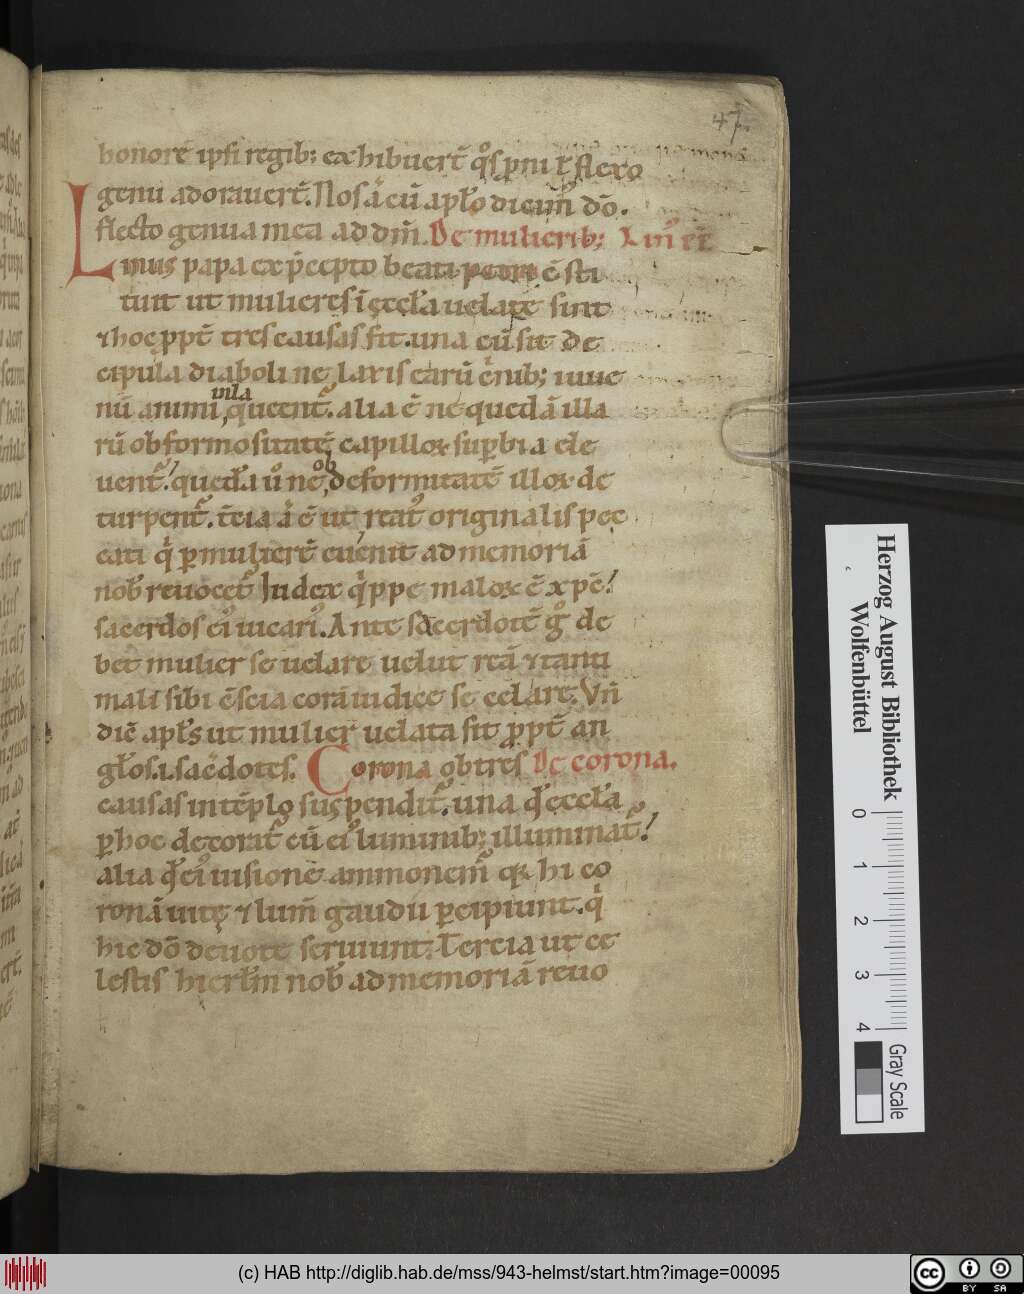 47
honorē ipsi regib; exhibuer̄t q̊s pm̄i t̄ flexo
genu adorauer̄t. Nos aͥ cū apl̄o dicim̄ dō.
flecto genua mea ad dm̄. De mulierib;
Linus papa ex p̄cepto beati petri ē sti
tuit ut mulieres ī ęccl̄a uelate sint
⁊ hoc ppt̄ tres causas fit. una cū sit de
cipula diaboli ne laxis earū crinib; iuue
nū animi, quęent̄. alia ē ne quedā illa
uilla
rū ob formositatē capilloꝝ suꝑbia ele
uent̄. quedā ů ne, deformitatē illoꝝ de
ob
turpent̄. t̄cia aͥ ē ut reat̄ originalis pec
cati qͥ ꝑ mulierē euenit ad memoriā
nob̄ reuocet̄. Iudex qͥppe maloꝝ ē xp̄c
sacerdos ei᾽ uicari᾽. Ante sacerdotē g̊ de
bet mulier se uelare uelut reā ⁊ tanti
mali sibi c̄scia corā iudice se celāre. Vn̄
dic̄ apl̄s ut mulier uelata sit ꝓpt̄ an
gl̄os. i. sacdotes. Corona ob tres De corona.
causas in tēplo suspendit̄. una qd̄ ęccl̄a
ꝑ hoc decorat̄ cū ei᾽ luminib; illuminat̄
alia qd̄ ei᾽ uisione ammonem̄ qꝛ hi co
ronā uitę ⁊ lum̄ gaudii ꝑcipiunt. qͥ
hic dō deuote seruiunt. Tercia ut ce
lestis hierl̄m nob̄ ad memoriā reuo
Herzog August Bibliothek
Wolfenbüttel
0 1 2 3 4
Gray Scale
(c) HAB http://diglib.hab.de/mss/943-helmst/start.htm?image=00095
cc BY SA